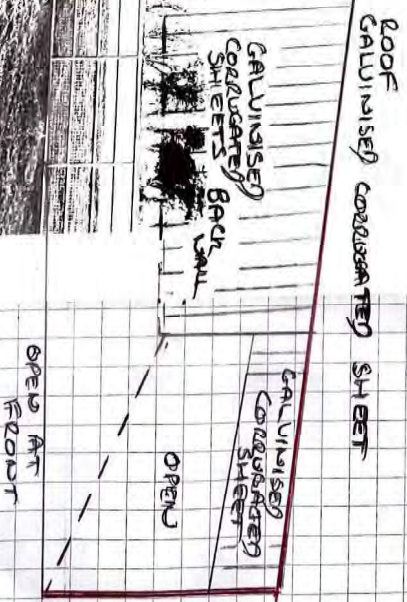 ROOF
GALVINISED CORRUGATED SHEET
GALVINISED
CORRUGATED
SHEETS BACK
WALL
GALVINISED
CORRUGATED
SHEET
OPEN
OPEN AT
FRONT